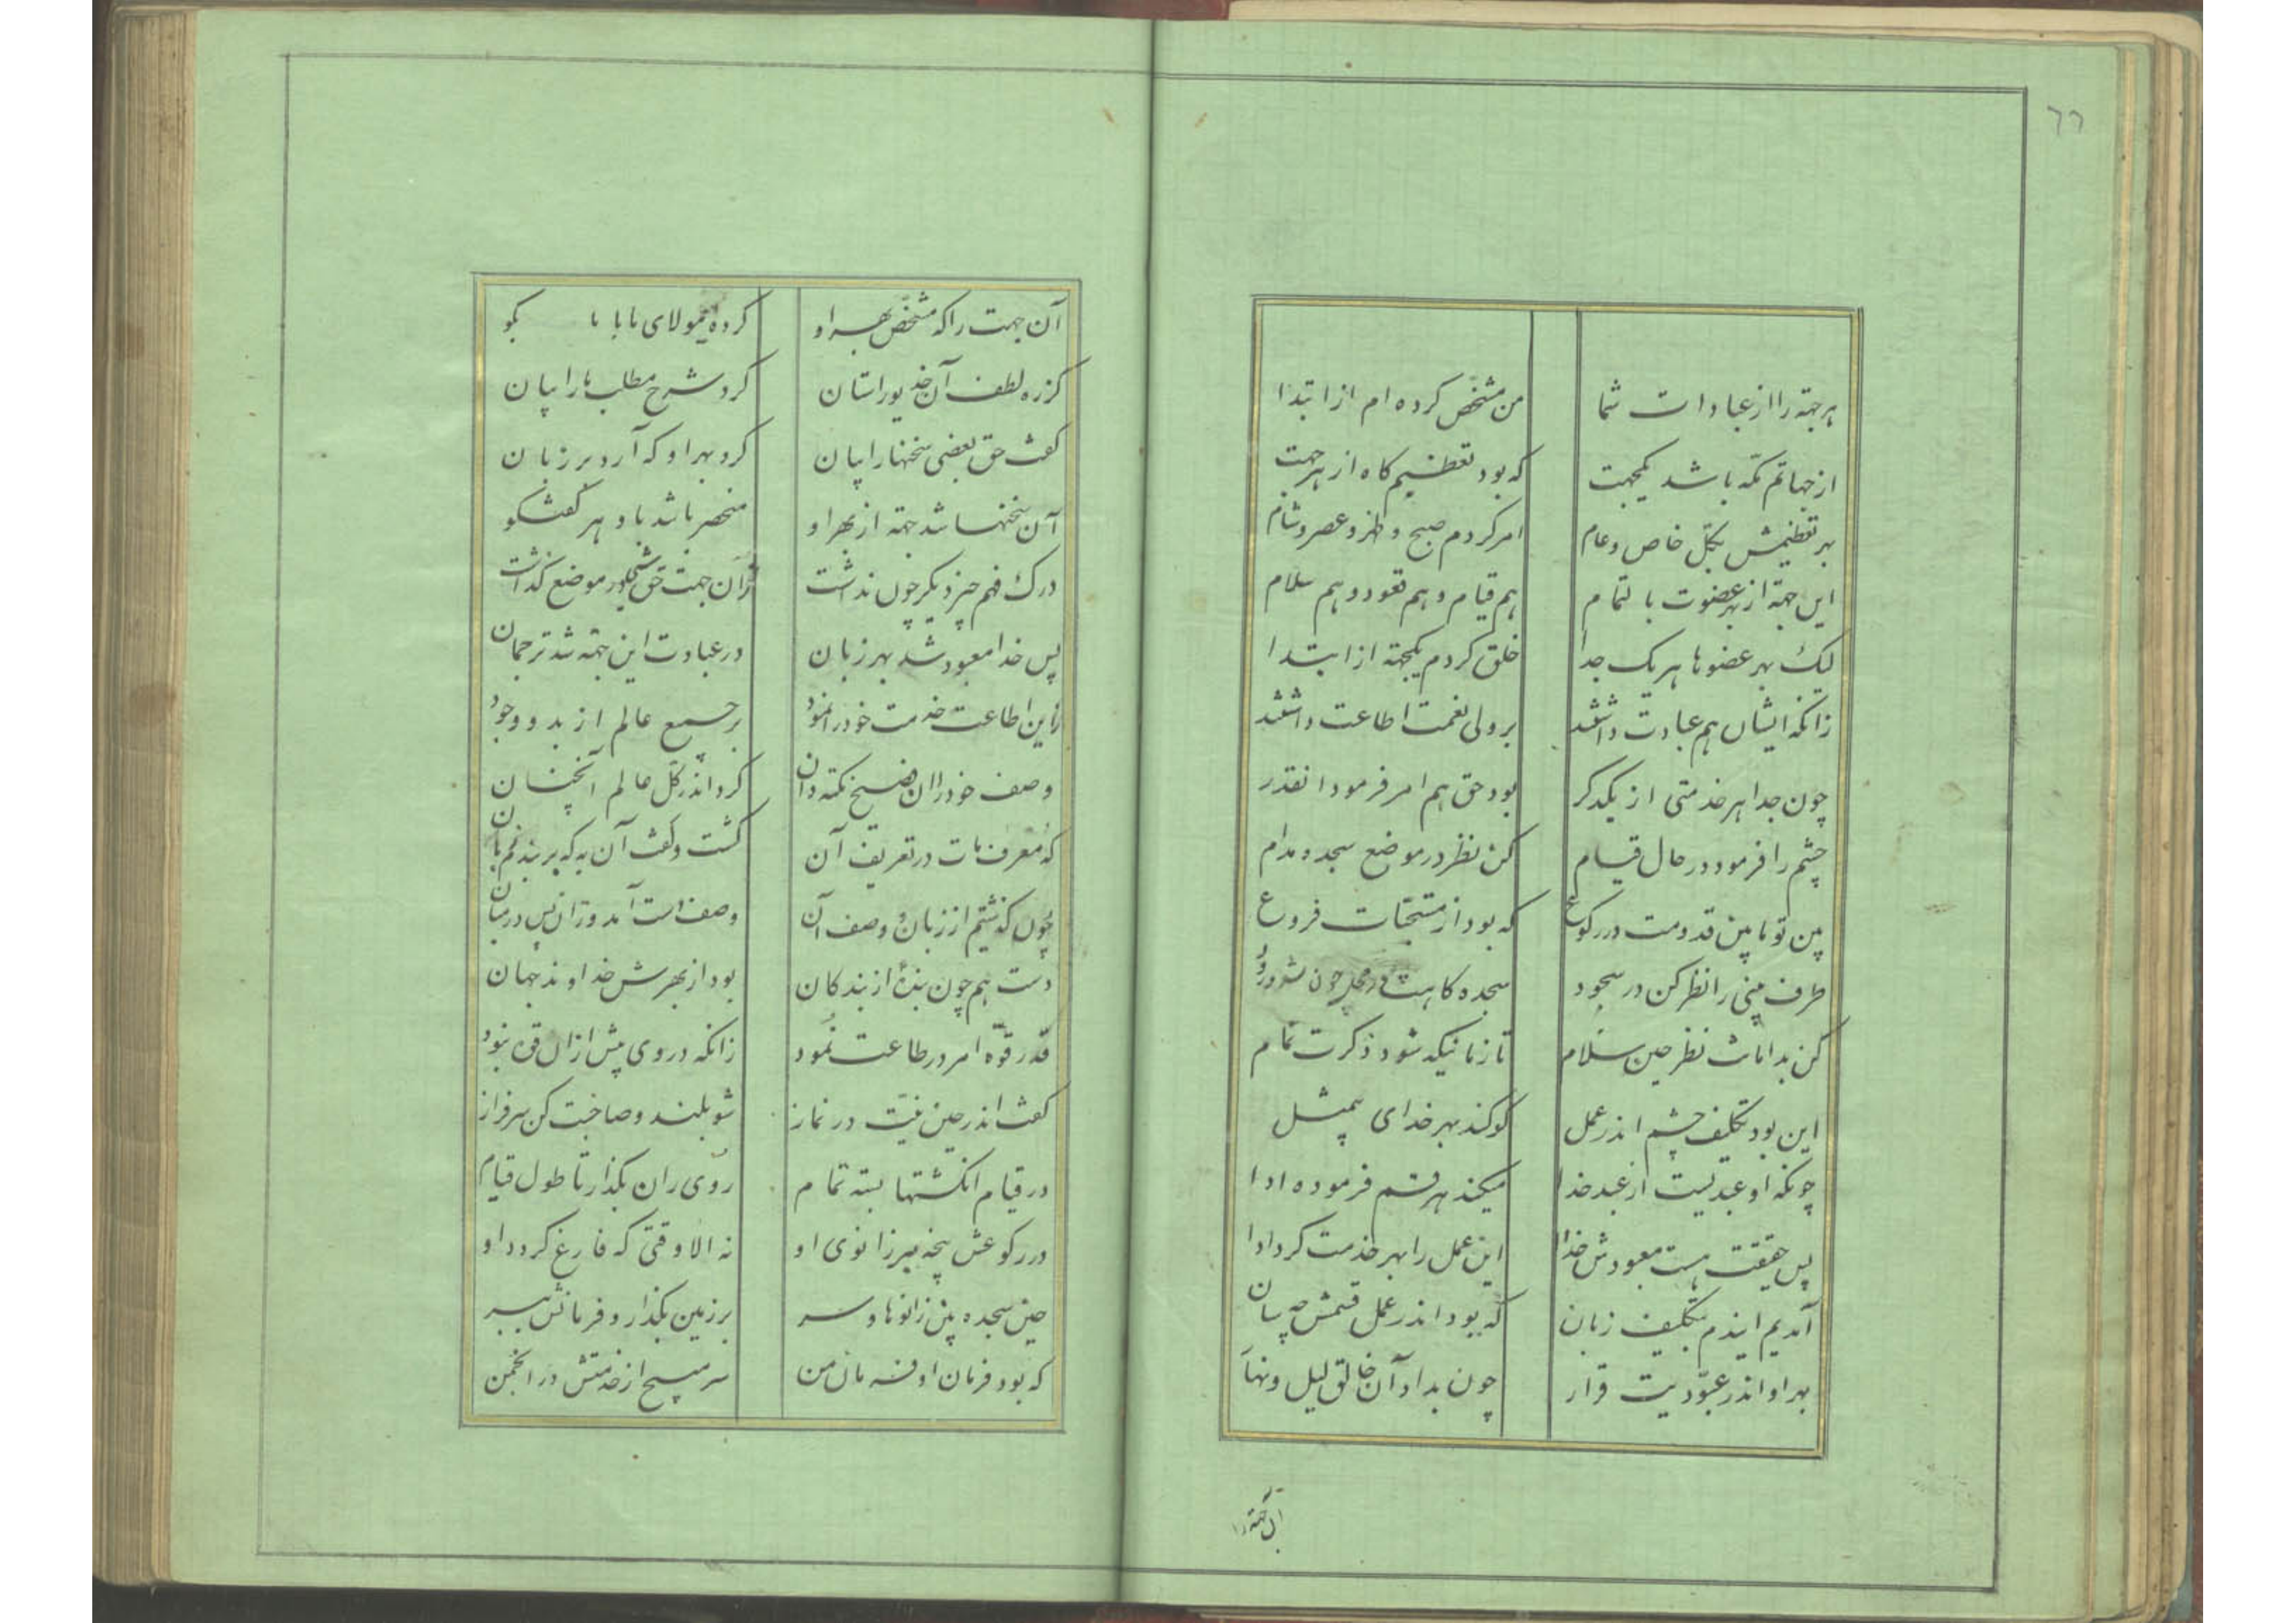 ٦٦
هر جهة را از عبادات شما من مشخص کرده ام از ابتدا
از جهاتم مکه باشد یکجهت که بود تعظیم کاه از هر جهت
بهر تعظیمش بکل خاص و عام امر کردم صبح و ظهر و عصر و شام
این جهة از بهر عضوت بالتمام هم قیام و هم قعود و هم سلام
لیک بهر عضوها هر یک جدا خلق کردم یکجهة از ابتدا
زانکه ایشان هم عبادت داشتند بر ولی نعمت اطاعت داشتند
چون جدا هر خدمتی از یکدکر بود حق هم امر فرمود انقدر
چشم را فرمود در حال قیام کن نظر در موضع سجده مدام
بین تو ما بین قدومت در رکوع که بود از مستحبات فروع
طرف بینی را نظر کن در سجود سجده کاهت چون شود
کن بدامانت نظر حین سلام تا زمانیکه شود ذکرت تمام
این بود تکلیف چشم اندر عمل کو کند بهر خدای بیمثل
چونکه او عبدیست از عبد خدا میکند هر قسم فرموده ادا
پس حقیقت هست معبودش خدا این عمل را بهر خدمت کرد ادا
آمدیم ایندم بتکلیف زبان که بود اندر عمل قسمش چه سان
بهر او اندر عبودیت قرار چون بداد آن خالق لیل و نهار
آن جهة را
آن جهت را که مشخص بهر او کرده مولای ما با ما بکو
کز ره لطف آن خدیو راستان کرد شرح مطلب ما را بیان
کفت حق بعضی سخنها را بیان کرد بهر او که آرد بر زبان
آن سخنها شد جهة از بهر او منحصر باشد باو هر کفتکو
درک فهم چیز دیکر چون نداشت زان جهت حق در موضع کذاشت
پس خدا معبود شد بهر زبان در عبادت این جهة شد ترجمان
زاین اطاعت خدمت خود را نمود بر جمیع عالم از بدو وجود
وصف خود را ان فصیح نکته دان کرد اندر کل عالم آنچنان
که معرف مات در تعریف آن کشت و کفت آن به که بر بندم زبان
چون کذشتیم از زبان و وصف آن وصف دست آمد وزان پس در میان
دست هم چون بندهٔ از بندکان بود از بهرش خداوند جهان
قدر قوّه امر در طاعت نمود زانکه در وی بیش ازان قوه نبود
کفت اندر حین نیّت در نماز شو بلند و صاحبت کن سرفراز
در قیام انکشتها بسته تمام روی ران بکذار تا طول قیام
در رکوعش پنجه بر زانوی او نه الا وقتی که فارغ کردد او
حین سجده بین زانوها و سر بر زمین بکذار و فرمانش ببر
که بود فرمان او فرمان من سر مپیچ از خدمتش در انجمن